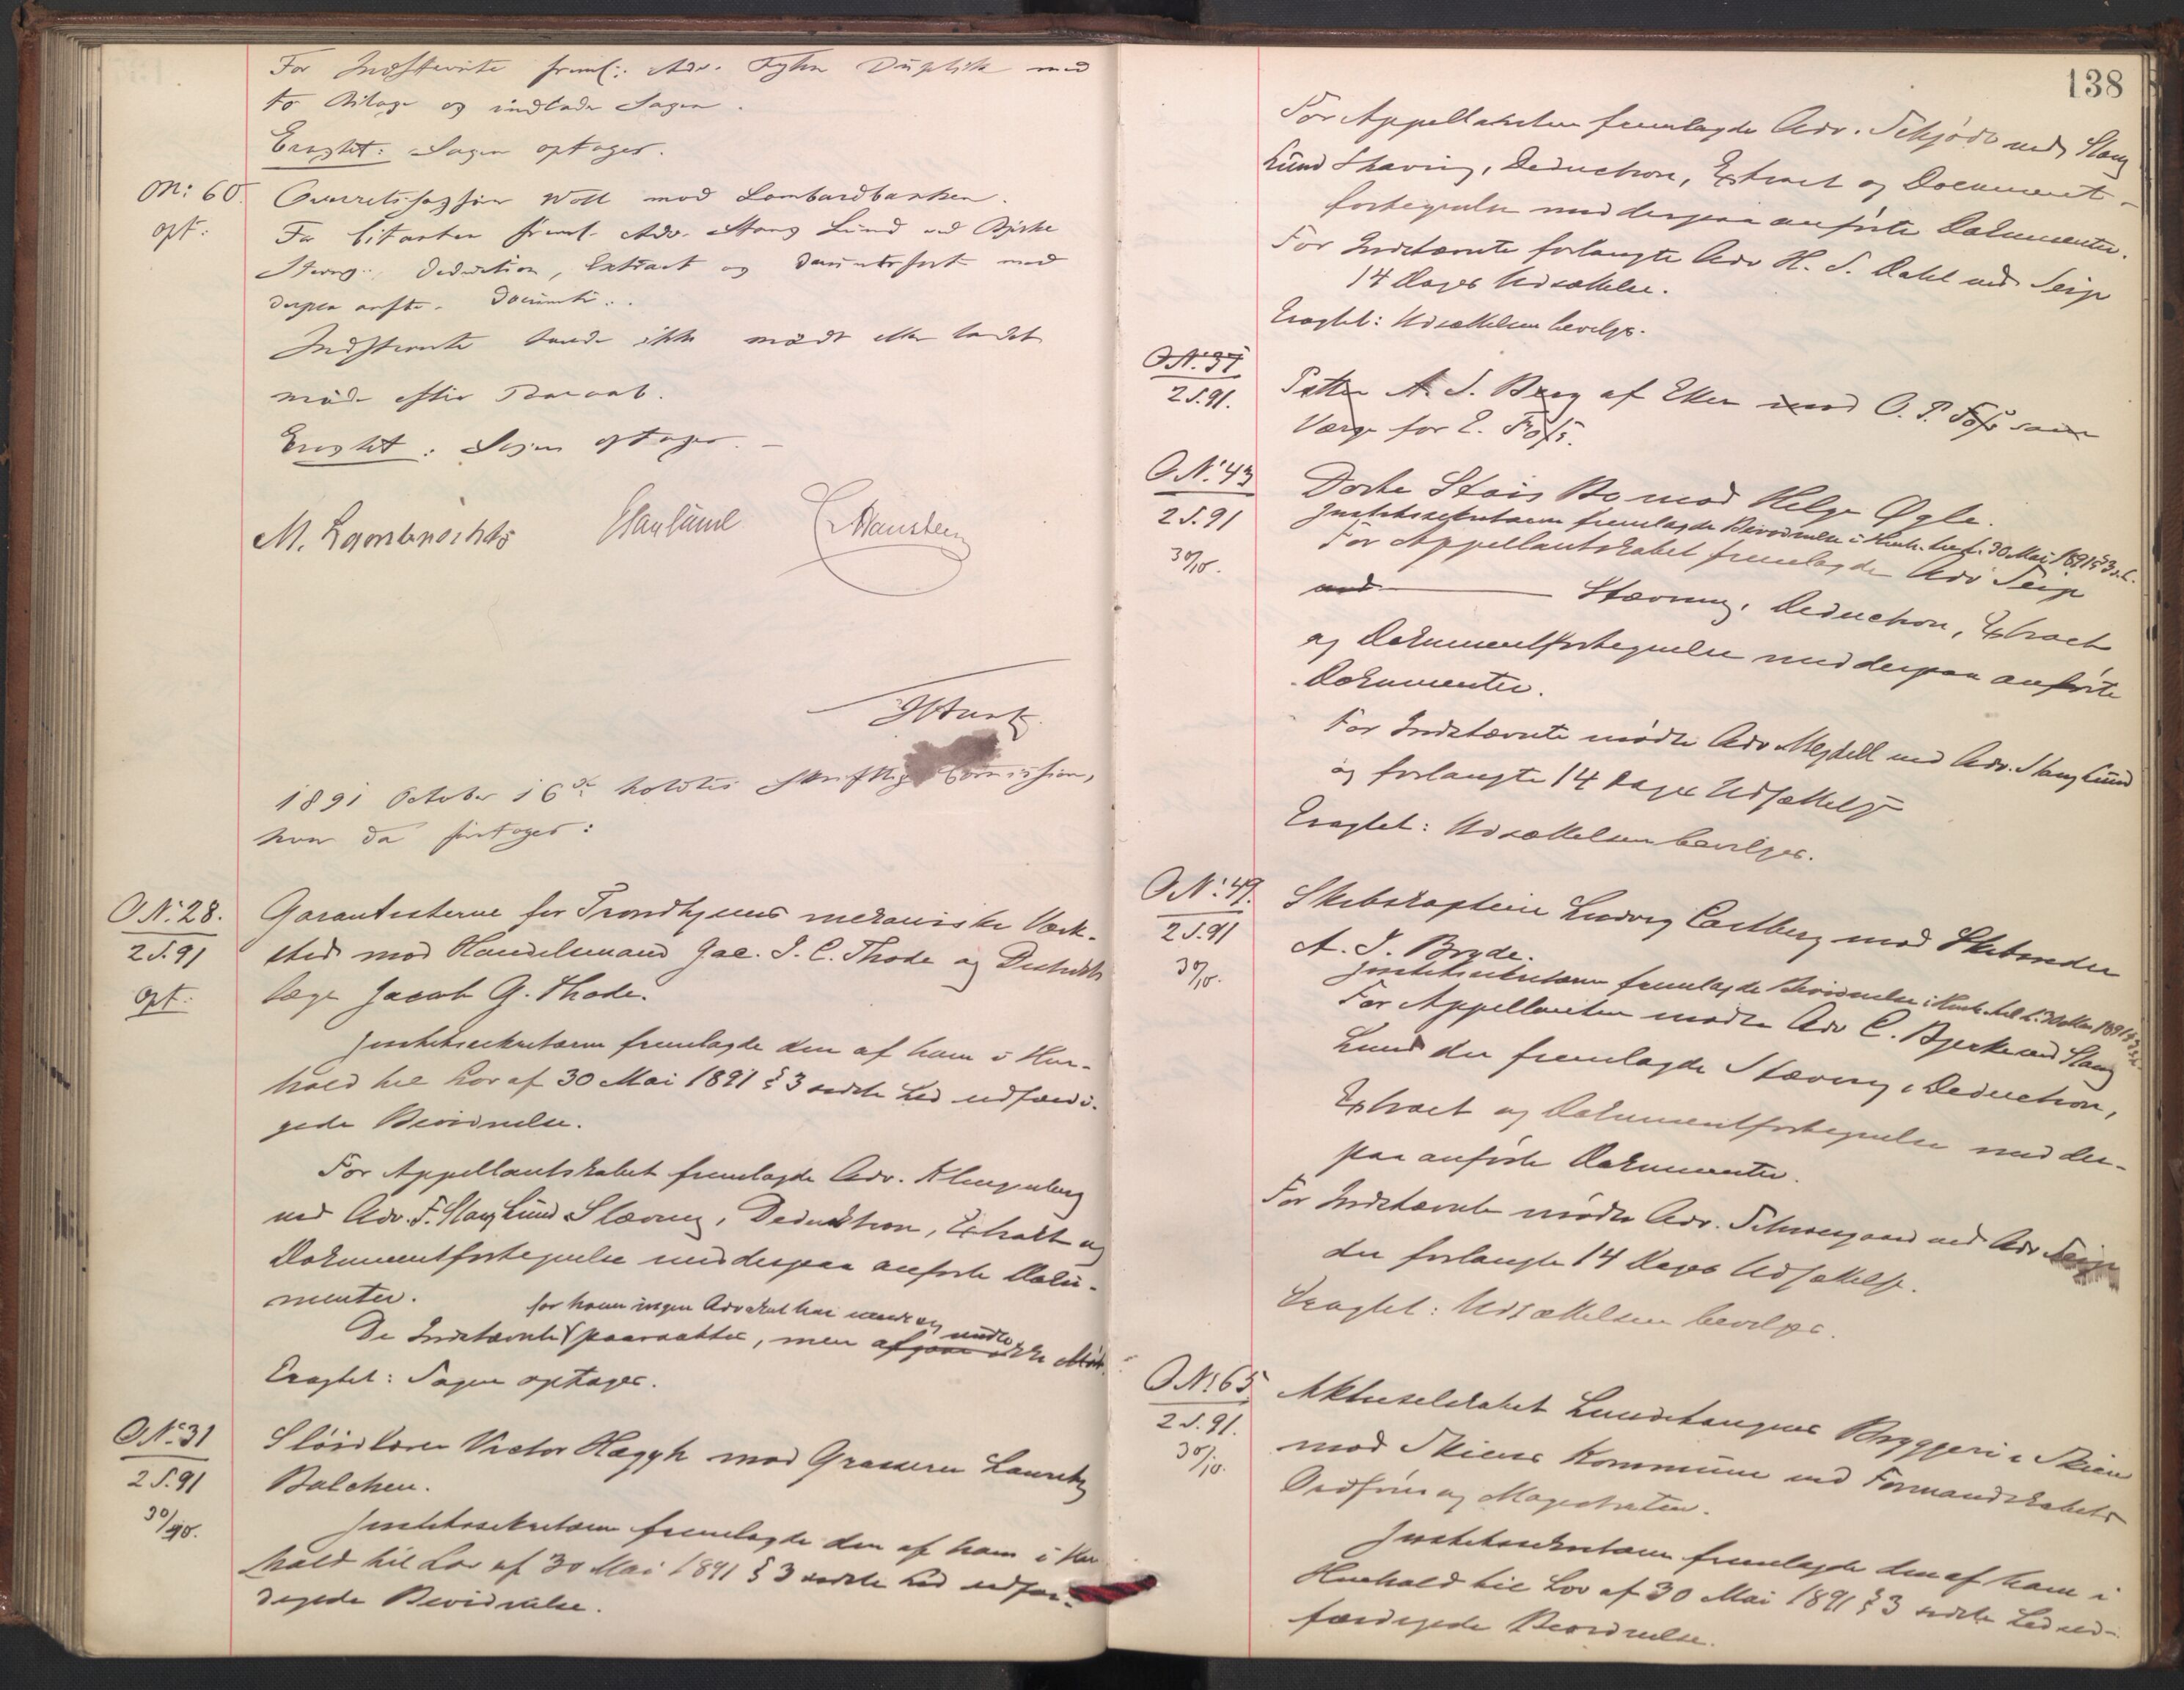 For Indstevnte freml: Adv. Duplik med
to Bilage og indlader Sagen.
Eragtet: Sagen optages.
No: 60. Overretssagfører Woll mod Lombardbanken.
opt: For Citanten freml. Adv. Stang Lund ved Bjerke
Stevng: Deduction, Extract og med
derpaa anførte Documenter.
Indstevnte havde ikke mødt eller ladet
møde efter Paaraab.
Eragtet: Sagen optages. –
M. Lambrechts
1891 October 16de holdtes skriftlig Comission,
hvor da foretoges:
O No. 28. Garantisterne for Trondhjems mekaniske Værk-
2 S. 91 sted mod Handelsmand Jac. J. C. Thode og Distrikts
opt: læge Jacob G. Thode.
Justitssekretæren fremlagde den af ham i Hen-
hold til Lov af 30 Mai 1891 § 3 sidste Led udfærdi-
gede Bevidnelse.
For Appellantskabet fremlagde Adv. Klingenberg
ved Adv. F. Stang Lund Stævning, Deduktion, Extrakt og
Dokumentfortegnelse med derpaa anførte Doku-
menter.
for hvem ingen Advokat har meldt sig mødte
De Indstævnte paaraabtes, men ikke
Eragtet: Sagen optages.
O No. 31 Sløidlærer Victor Hagyh mod Grosserer Lauritz
2 S. 91 Balchen.
30/10. Justitssekretæren fremlagde den af ham i Hen
hold til Lov af 30 Mai 1891 § 3 sidste Led udfær-
digede Bevidnelse.
138
For Appellanten fremlagde Adv. Schjødt ved Stang
Lund Stævning, Deduction, Extract og Document-
fortegnelse med derpaa anførte Dokumenter.
For Indstævnte forlangte Adv H. S. Dahl ved Seip
14 Dages Udsættelse.
Eragtet: Udsættelsen bevilges.
O No. 37
2 S. 91. A. S. Berg af Eker mod O. P. Foss som
Værge for E. Foss.
O No. 43 Dorthe Bo mod Helge Øgle.
2 S. 91 Justitssekretæren fremlagde Bevidnelse i Henh. til L. 30 Mai 1891 § 3 s. L.
30/10. For Appellantskabet fremlagde Adv Seip
ved Stævning, Deduction, Extract
og Dokumentfortegnelse med derpaa anførte
Dokumenter.
For Indstævnte mødte Adv Mejdell ved Adv. Stang Lund
og forlangte 14 Dages Udsættelse
Eragtet: Udsættelsen bevilges.
O No. 49. Skibskaptein Ludvig Castberg mod Skibsreder
2 S. 91 A. J. Bryde.
30/10. Justitssekretæren fremlagde Bevidnelse i Henh. til L. 30 Mai 1891 § 3 s. L.
For Appellanten mødte Adv C. Bjerke ved Stang
Lund der fremlagde Stævning, Deduction,
Extract og Dokumentfortegnelse med der-
paa anførte Dokumenter.
For Indstævnte mødte Adv. Schweigaard ved Adv Seip
der forlangte 14 Dages Udsættelse.
Eragtet: Udsættelsen bevilges.
O No. 65 Aktieselskabet Lundetangens Bryggeri i Skien
2 S. 91. mod Skiens Kommune ved Formandskabets
30/10. Ordfører og Magistraten.
Justitssekretæren fremlagde den af ham i
Henhold til Lov af 30 Mai 1891 § 3 sidste Led ud-
færdigede Bevidnelse.